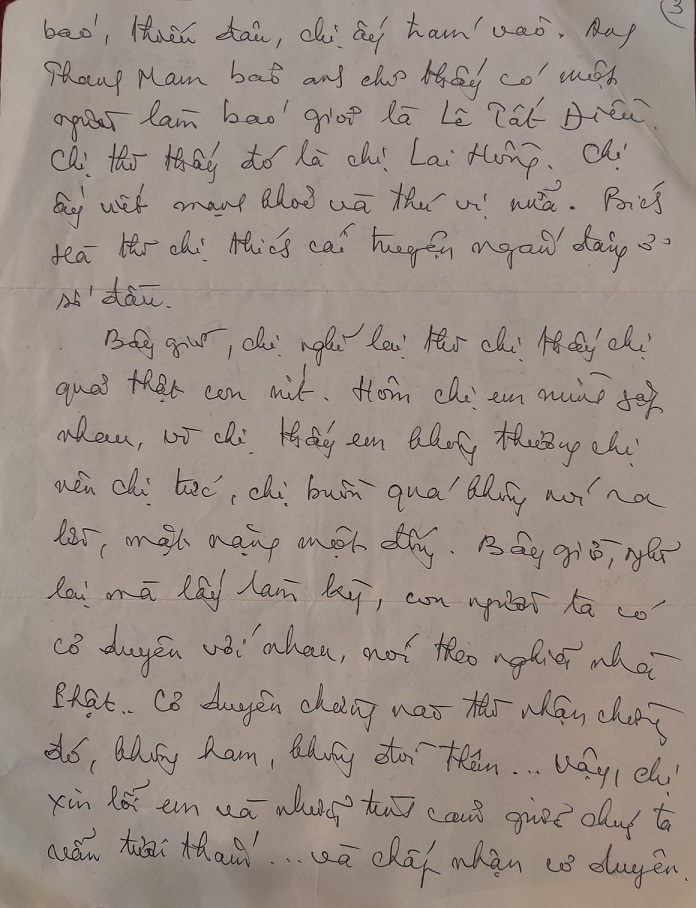 3
báo, thiếu đâu, chị ấy tham vào. Anh
Phang Nam bảo anh chỉ thấy có một
người làm báo giỏi là Lê Tất Điều.
Chị thì thấy đó là chị Lai Hồng. Chị
ấy viết mạnh khoẻ và thú vị nữa. Bích
Hà thì chị thích cái truyện ngắn đăng ở
số đầu.
Bây giờ, chị nghĩ lại thì chị thấy chị
quả thật con nít. Hôm chị em mình gặp
nhau, vì chị thấy em không thương chị
nên chị tức, chị buồn quá không nói ra
lời, mặt nặng một đống. Bây giờ, nghĩ
lại mà lấy làm kỳ, con người ta có
cơ duyên với nhau, nói theo nghĩa nhà
Phật.. Cơ duyên chừng nào thì nhận chừng
đó, không ham, không đòi thêm... Vậy, chị
xin lỗi em và những tình cảm giữa chúng ta
vẫn tươi thắm... và chấp nhận cơ duyên.